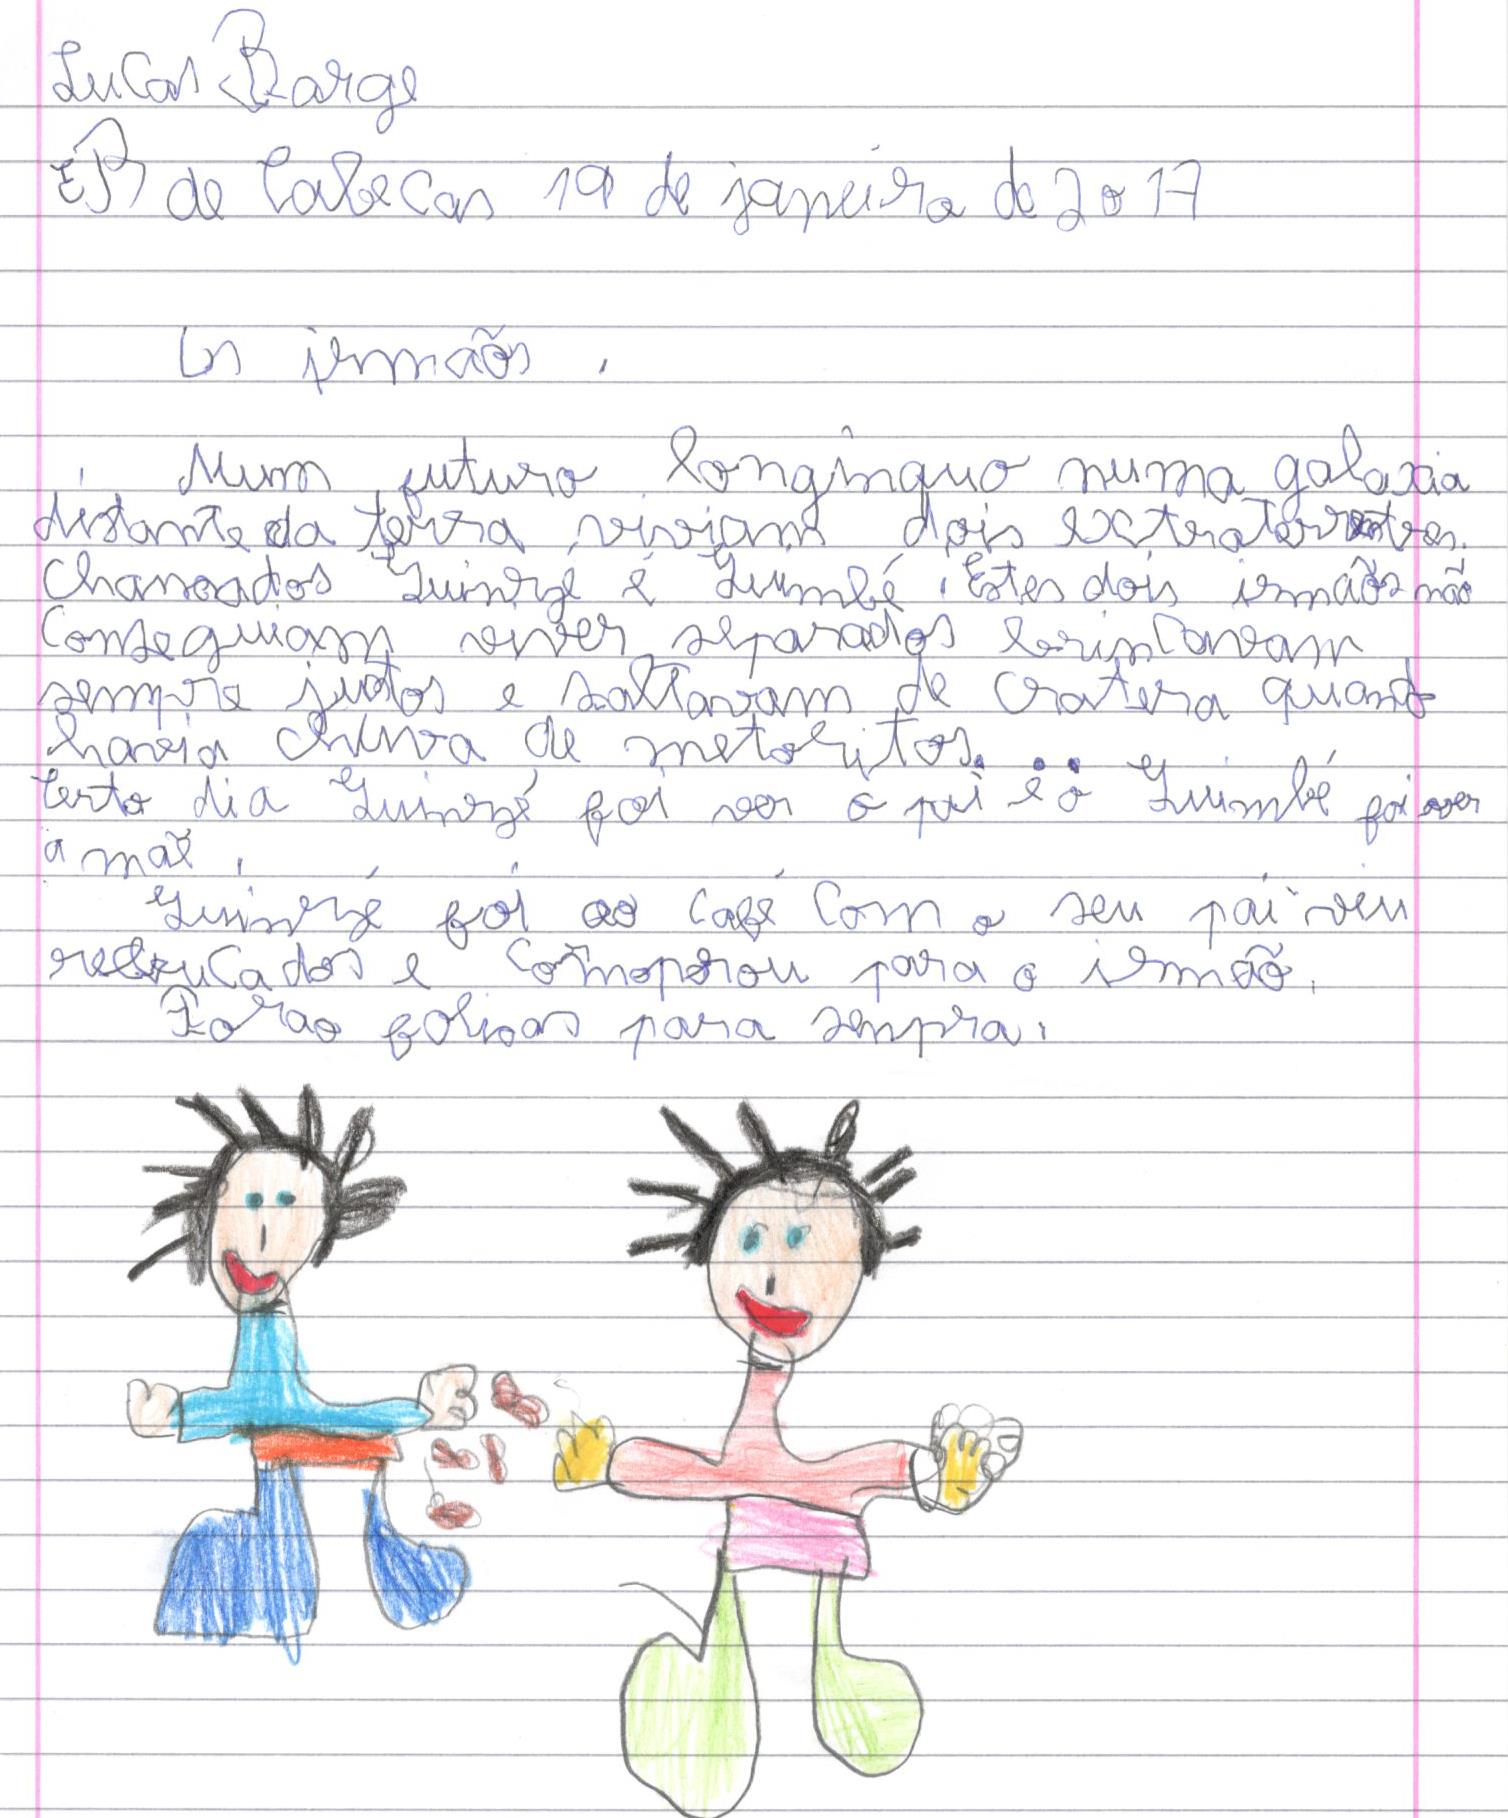 Lucas Barge
EB de Cabecas 19 de janeiro de 2017
Os irmãos.
Num futuro longínquo numa galaxia
distante da terra viviam dois extraterrestres.
chamados Guinzé e Guimbé. Estes dois irmãos não
conseguiam viver separados brincavam
sempre jutos e saltavam de cratera quando
havia chuva de metoritos...
Certo dia Guinzé foi ver o pai e o Guimbé foi ver
a mãe.
Guinzé foi ao café com o seu pai veu
rebuçados e para o irmão.
Forao para sempra.